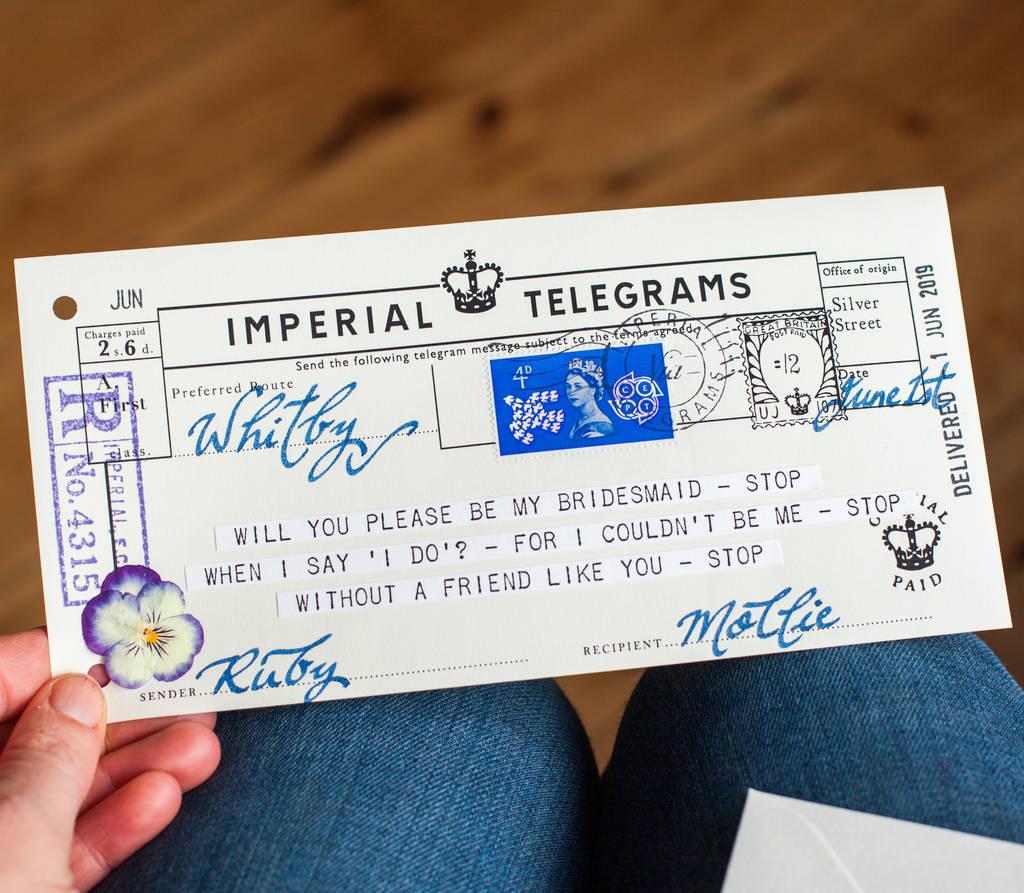 JUN
IMPERIAL TELEGRAMS
Send the following telegram message subject to the terms agreed
Charges paid
2 s. 6 d.
A.
First
class.
Preferred Route
Whitby
R No. 4315
4D
CEPT
GREAT BRITAIN
POST PAID
=12
UJ
Office of origin
Silver
Street
Date
June 1st
DELIVERED 1 JUN 2019
WILL YOU PLEASE BE MY BRIDESMAID – STOP
WHEN I SAY 'I DO'? – FOR I COULDN'T BE ME – STOP
WITHOUT A FRIEND LIKE YOU – STOP
PAID
SENDER Ruby
RECIPIENT Mollie